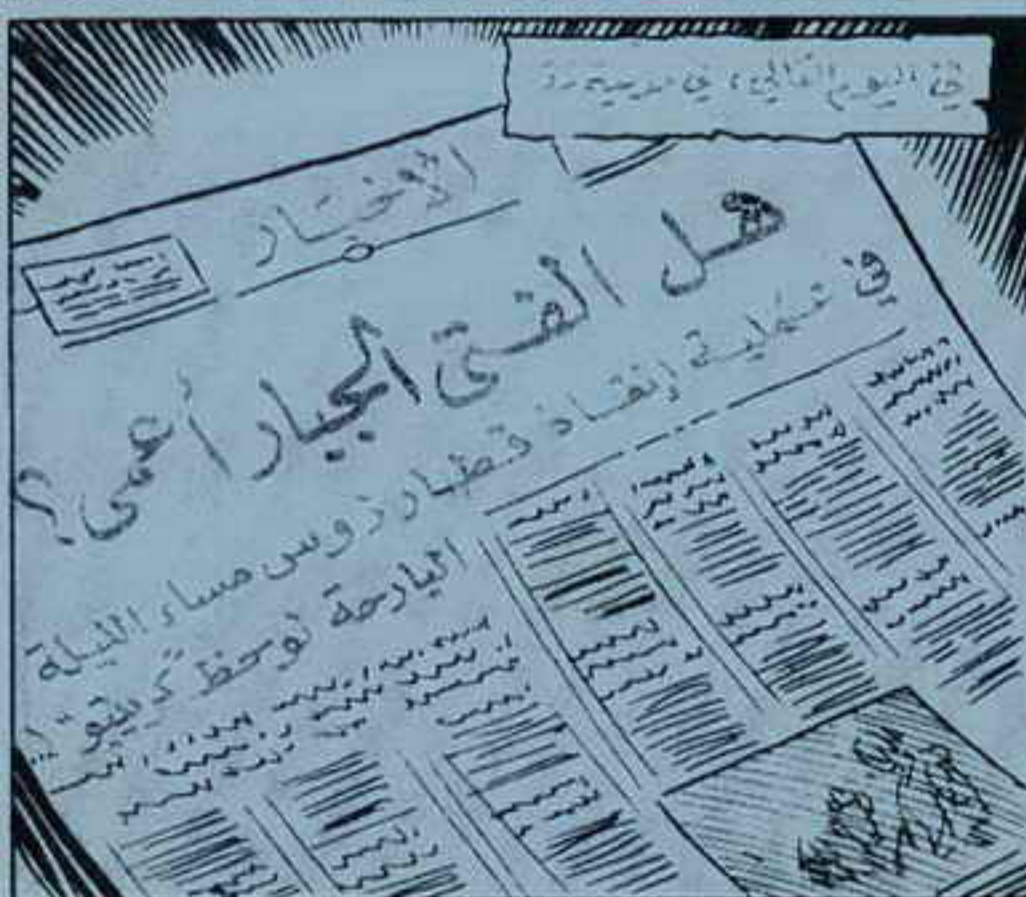 في اليوم التالي، في مدينة
الأخبار
هل الفتى الجبار أعمى؟
في عملية إنقاذ قطار زوس مساء الليلة
البارحة لوحظ كريبتو